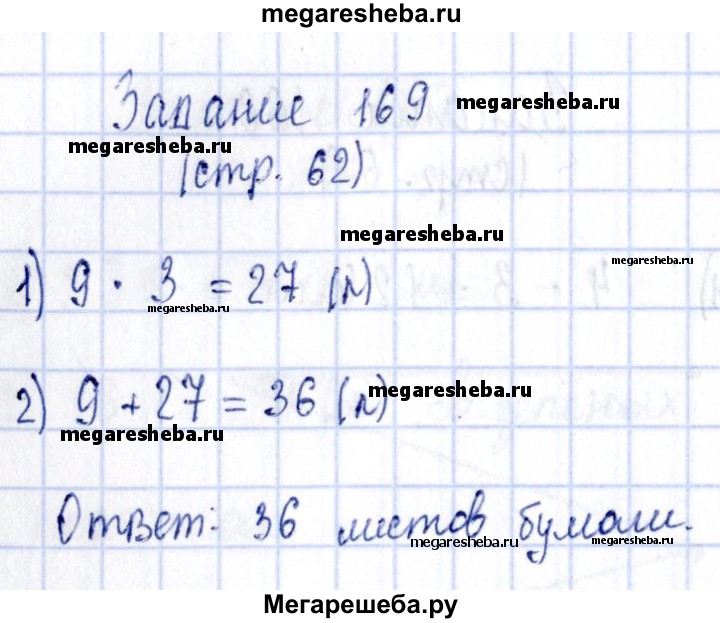 megaresheba.ru
Задание 169
megaresheba.ru
megaresheba.ru
(стр. 62)
megaresheba.ru
1) 9 · 3 = 27 (л)
megaresheba.ru
megaresheba.ru
2) 9 + 27 = 36 (л)
megaresheba.ru
megaresheba.ru
Ответ: 36 листов бумаги.
megaresheba.ru
megaresheba.ru
Мегарешеба.ру